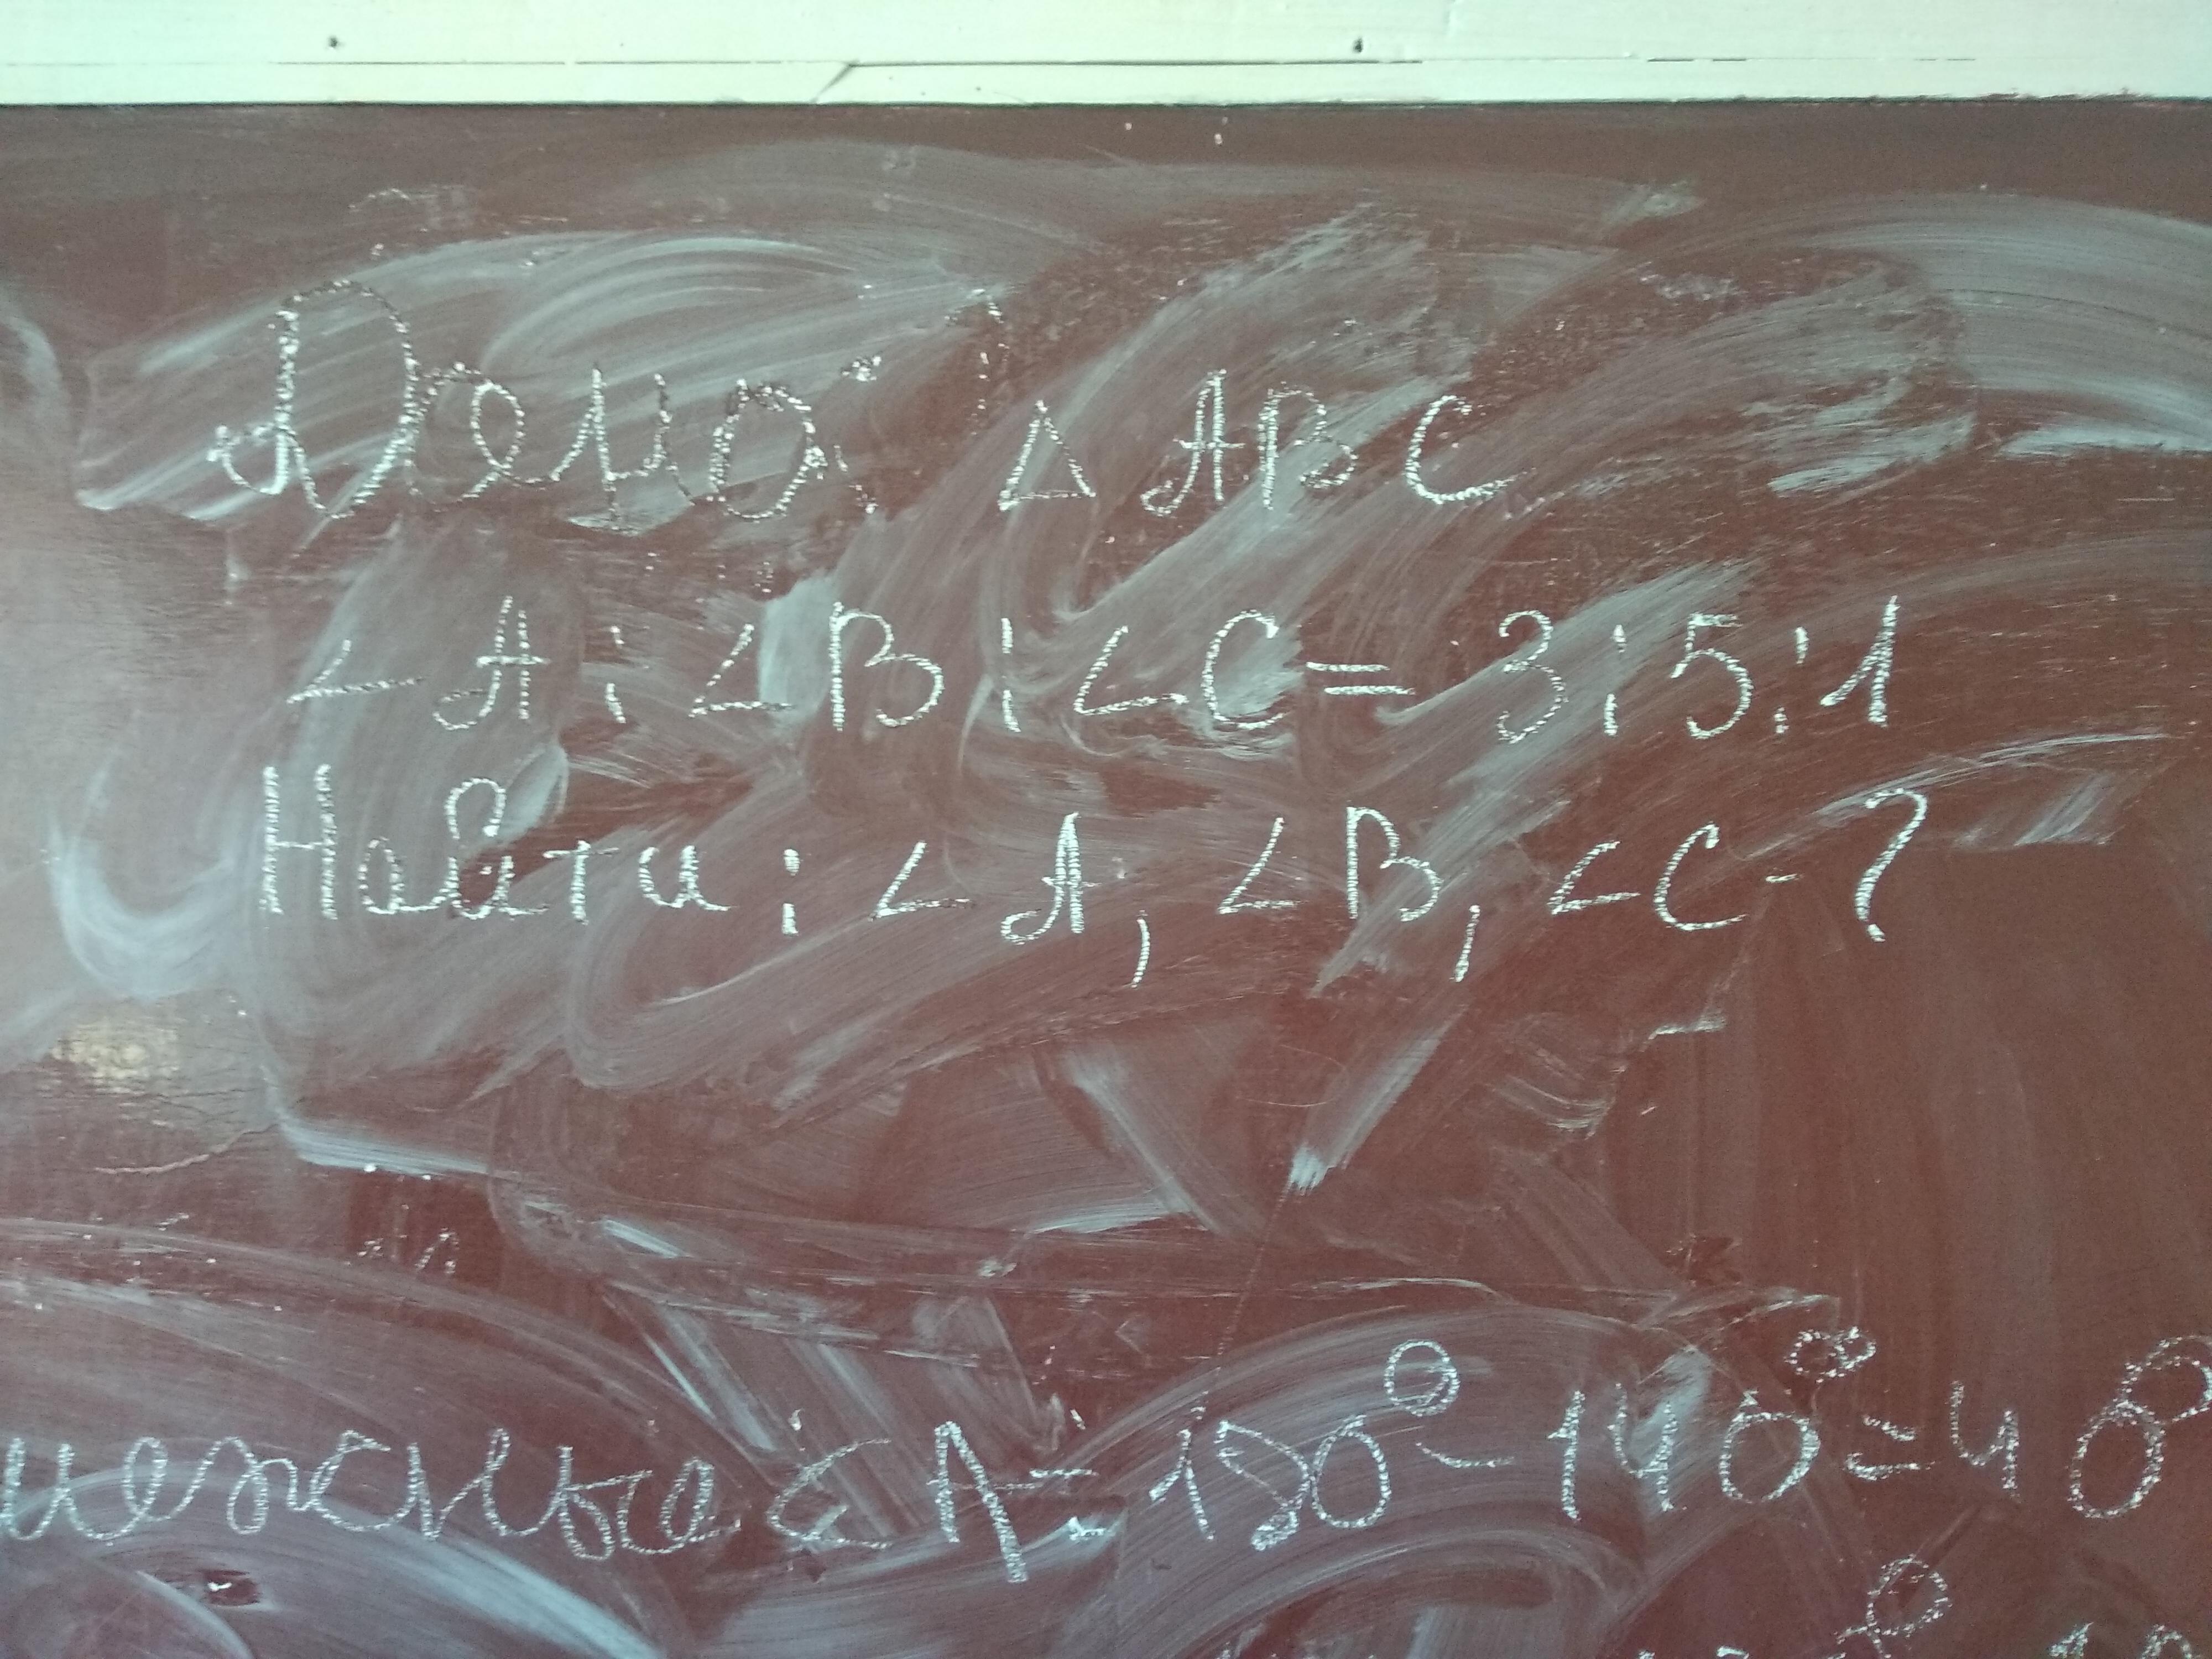 Дано: △ ABC
∠A:∠B:∠C = 3:5:1
Найти: ∠A, ∠B, ∠C-?
∠A = 180° - 140° = 40